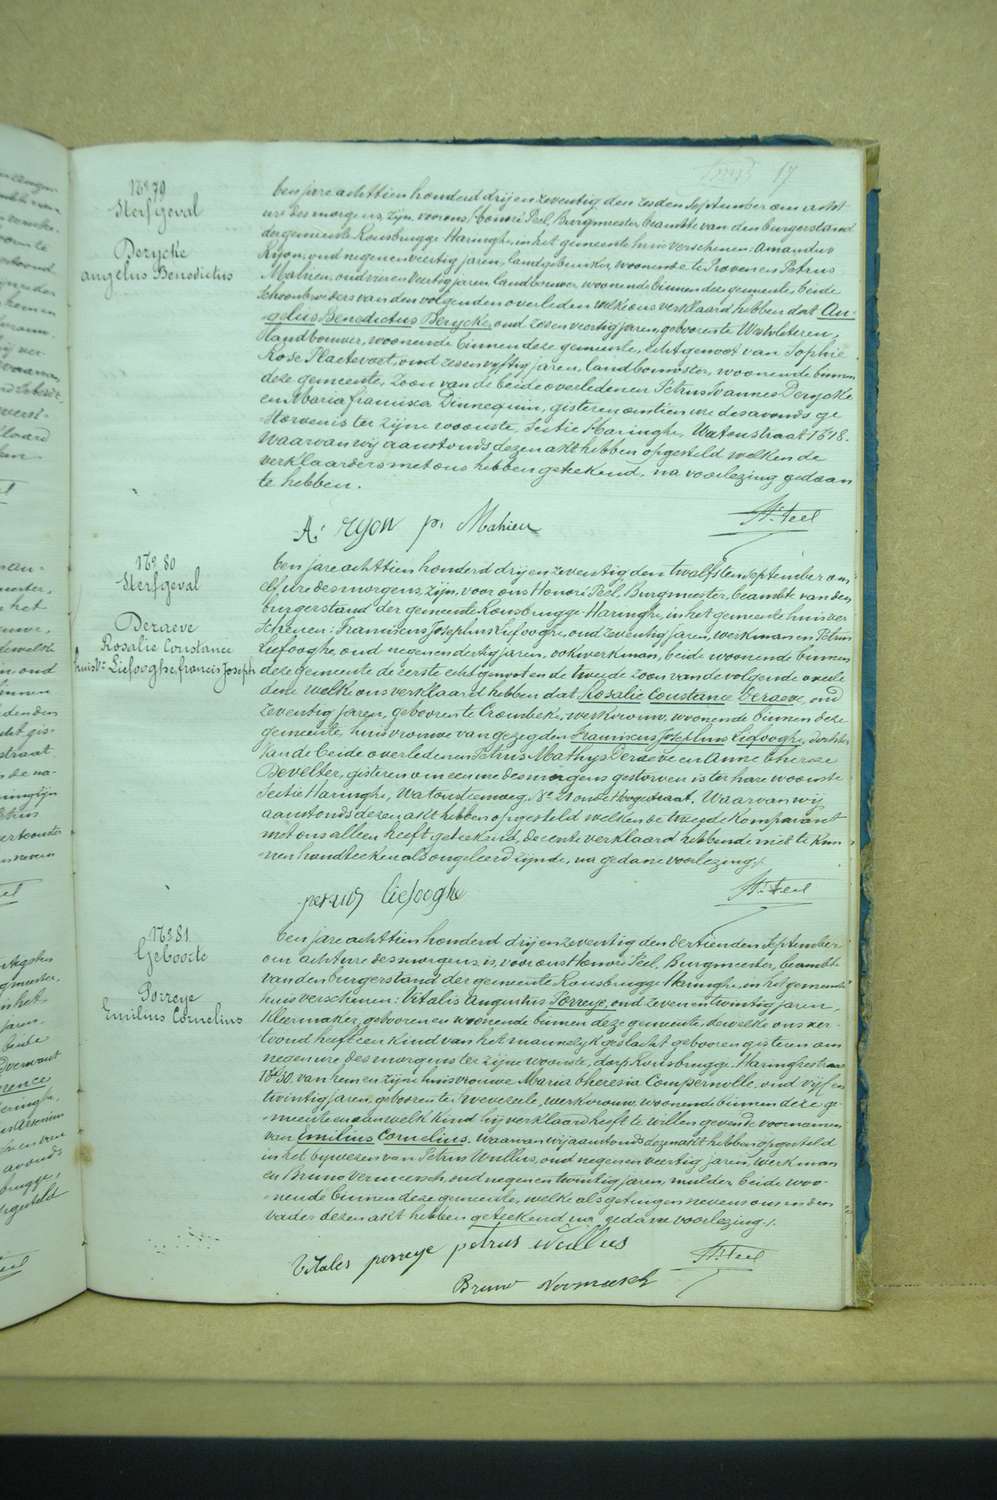 17
N° 79
Sterfgeval
Derycke
Angelus Benedictus
Ten jare achttien honderd drij en zeventig, den zesden September om acht
ure des morgens, zijn, voor ons Honoré Peel, Burgmeester, beambte van den burgerstand
der gemeente Rousbrugge Haringhe, in het gemeente huis verschenen: Amandus
Ryon, oud negen en veertig jaren, landgebruiker, woonende te Proven en Petrus
Mahieu, oud vier en veertig jaren landbouwer, woonende binnen deze gemeente, beide
schoonbroeders van den volgenden overleden welke ons verklaard hebben dat An-
gelus Benedictus Derycke, oud zes en veertig jaren, geboren te Westvleteren,
Landbouwer, woonende binnen deze gemeente, echtgenoot van Sophie
Rose Plaetevoet, oud zes en vyftig jaren, landbouwster, woonende binnen
deze gemeente, zoon van de beide overledenen Petrus Joannes Derycke
en Maria francisca Dennequin, gisteren om tien ure des avonds ge
storven is ter zijne wooonste, Sectie Haringhe, Watoustraat N° 18.
Waarvan wij aanstonds dezen akt hebben opgesteld welken de
verklaarders met ons hebben geteekend, na voorlezing gedaan
te hebben.
A. Ryon p. Mahieu
H. Peel
N° 80
Sterfgeval
Deraeve
Rosalie Constance
huisv. Liefooghe francis Joseph
Ten jare achttien honderd drij en zeventig den twalfsten September om
elf ure des morgens, zijn, voor ons Honoré Peel, Burgmeester, beambte van den
burgerstand der gemeente Rousbrugge-Haringhe, in het gemeente huis ver
schenen: Franciscus Josephus Liefooghe, oud zeventig jaren, werkman en Petrus
Liefooghe oud negen en dertig jaren, ook werkman, beide woonende binnen
deze gemeente de eerste echtgenoot en de tweede zoon van de volgende overle
dene welk ons verklaard hebben dat Rosalie Constance Deraeve, oud
zeventig jaren, geboren te Crombeke, werkvrouw, woonende binnen deze
gemeente, huisvrouwe van gezegden Franciscus Josephus Liefooghe, dochter
van de beide overledenen Petrus Mathys Deraeve en Anne Therese
Develter, gisteren om een ure des morgens gestorven is ter hare woonste
Sectie Haringhe, Watousteenweg, N° 21 onder Hoogestraat. Waarvan wij
aanstonds dezen akt hebben opgesteld welken de tweede komparant
met ons alleen heeft geteekend, de eerste verklaard hebbende niet te kun
nen handteeken als ongeleerd zijnde, na gedane voorlezing./.
petrus liefooghe
H. Peel
N° 81
Geboorte
Porreye
Emilius Cornelius
Ten jare achttien honderd drij en zeventig den dertienden September
om acht ure des morgens, is, voor ons Honoré Peel, Burgmeester, beambte
van den burgerstand der gemeente Rousbrugge Haringhe, in het gemeente
huis verschenen: Vitalis Augustus Porreye, oud zeven en twintig jaren,
kleermaker, geboren en woonende binnen deze gemeente, dewelke ons ver
toond heeft een kind van het mannelijk geslacht geboren gisteren om
negen ure des morgens ter zijne woonste, dorp Rousbrugge, Haringhestraat
N° 30. van hem en zijne huisvrouwe Maria theresia Compernolle, oud vijf en
twintig jaren, geboren te Zwevezeele, werkvrouw, woonende binnen deze ge
meente en aan welk kind hij verklaard heeft te willen geven de voornamen
van Emilius Cornelius. Waarvan wij aanstonds dezen akt hebben opgesteld
in het bijwezen van Petrus Wullus, oud negen en veertig jaren, werkman
en Bruno Vermeersch, oud negen en twintig jaren, mulder, beide woo-
nende binnen deze gemeente, welke als getuigen nevens ons en den
vader dezen akt hebben geteekend na gedane voorlezing./.
Vitales porreye petrus Wullus
H. Peel
Bruno Vermeersch